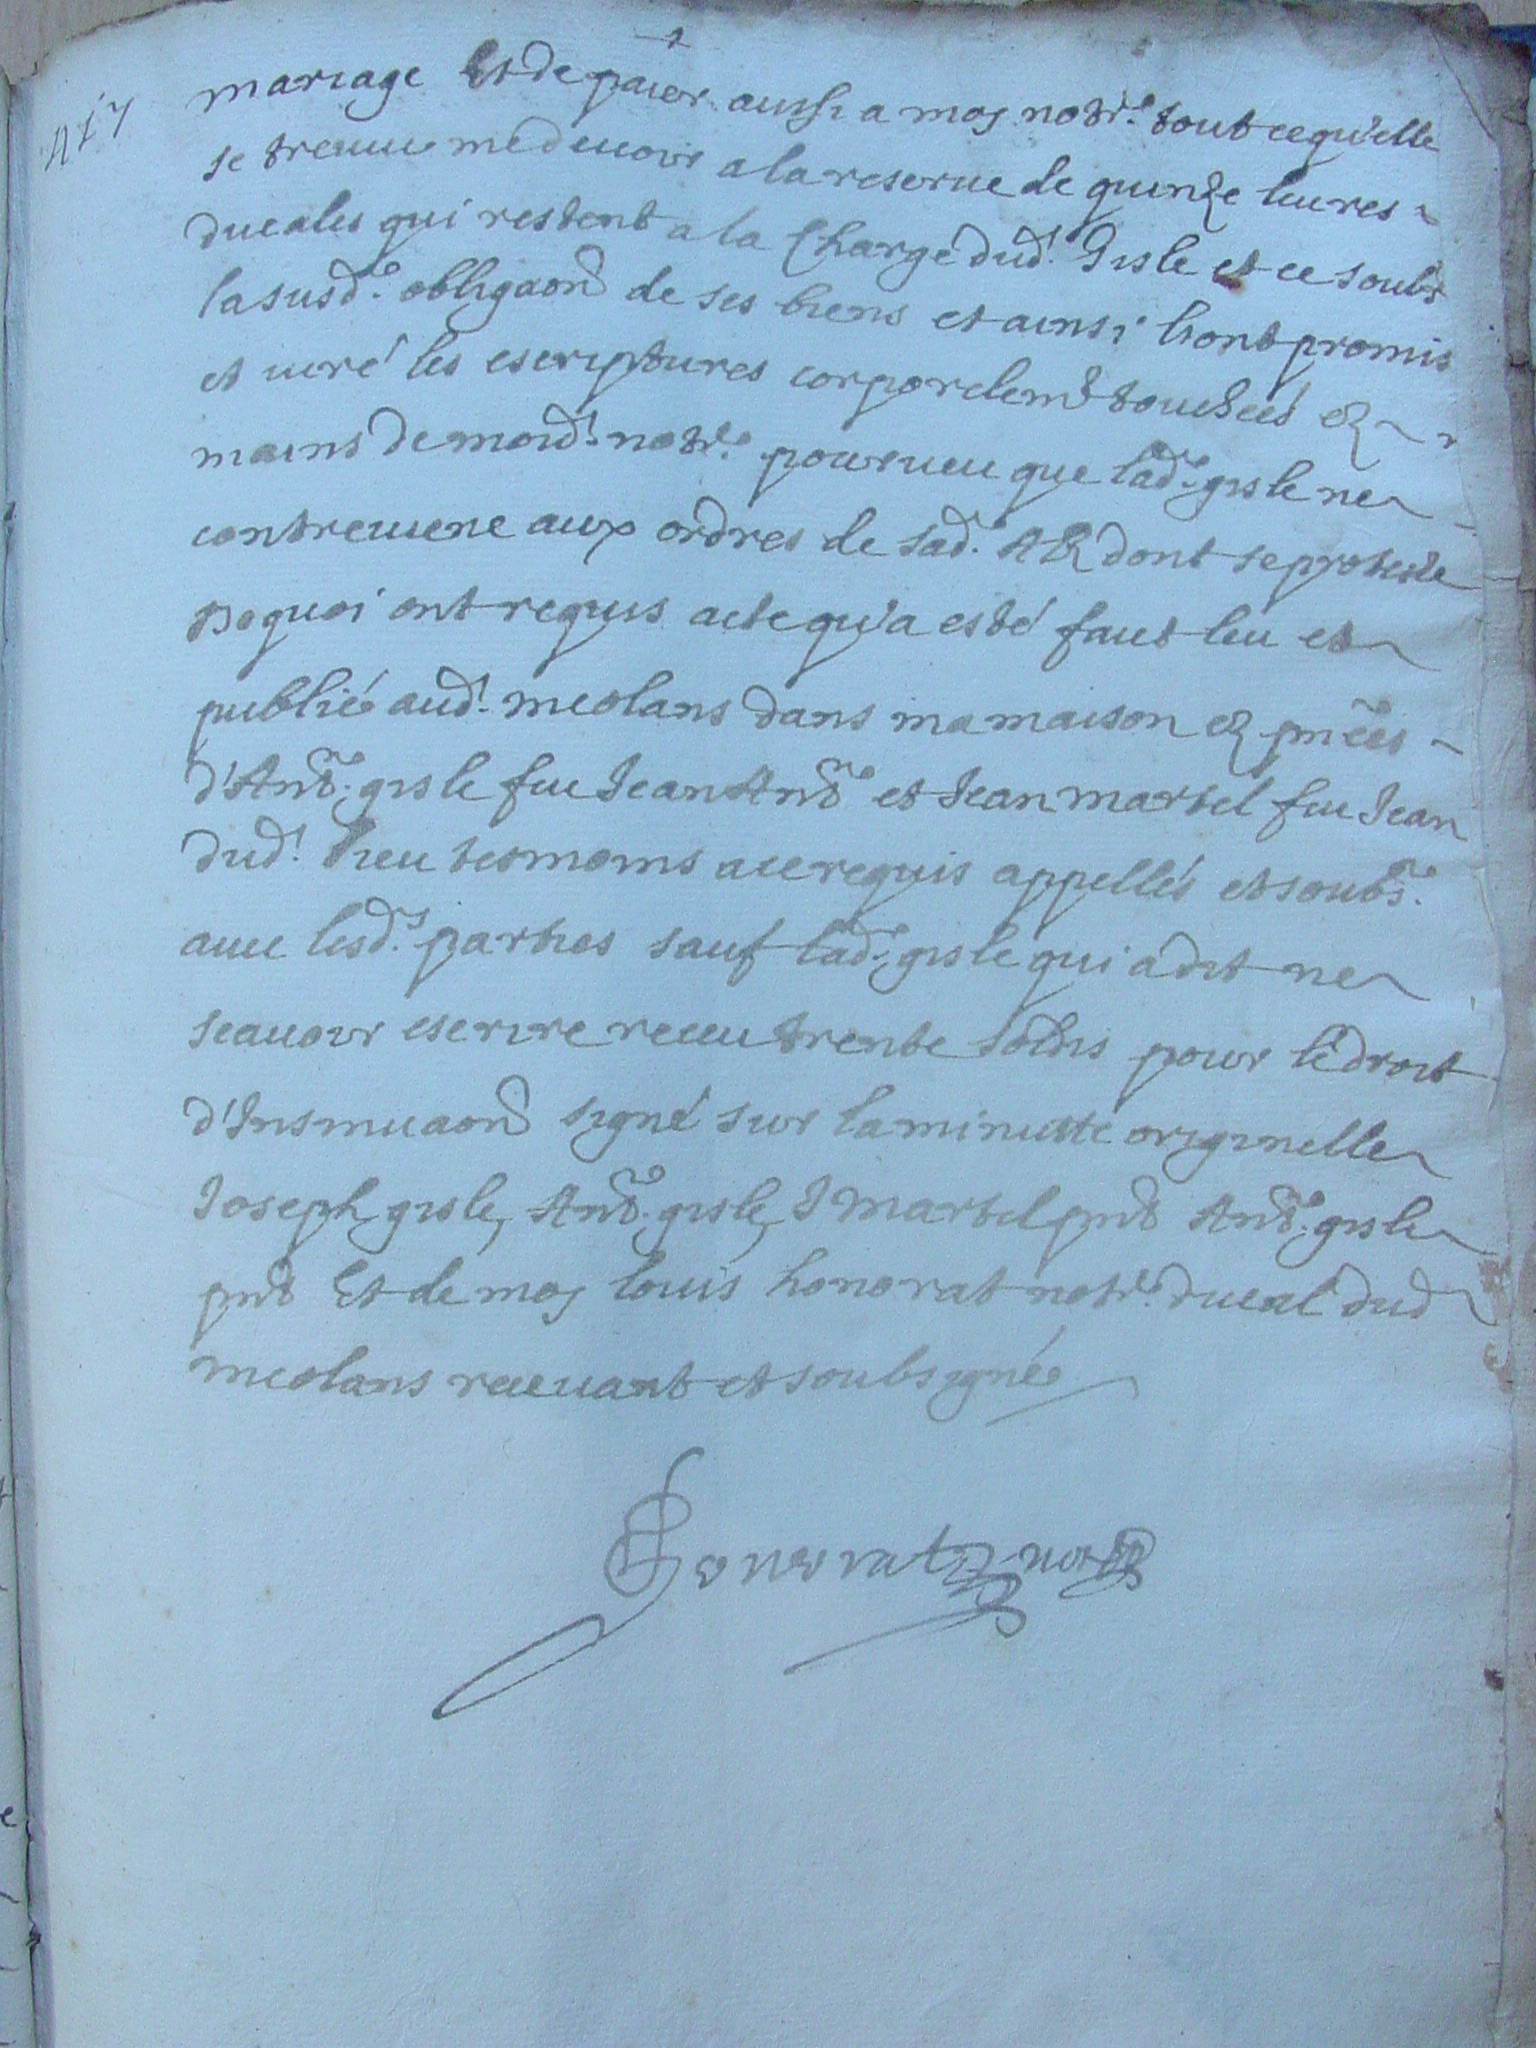 417
mariage Et de paier aussi a moy notre. tout ce qu'elle
se treuue me deuoir a la reserue de quinze liures
ducales qui restent a la Charge dud. Gisle et ce soubs
la susde. obligaon de ses biens et ainsi l'ont promis
et iuré les escriptures corporelemt touchées ez
mains de moid. notre. pourueu que lade. gisle ne
contreuiene aux ordres de sad. AR dont se proteste
De quoi ont requis acte qu'a esté faict leu et
publié aud. meolans dans ma maison ez pnces
d'Antne. gisle fue Jean Antne et Jean martel fue Jean
dud. lieu tesmoins a ce requis appellés et soubsnes.
auec lesds. parties sauf lade. gisle qui a dit ne
scauoir escrire receu trente solds pour le droit
d'Insinuaon signé sur la minutte originelle
Joseph gisle, Antne. gisle, J martel pnt Antne. gisle
pnt Et de moy louis honorat notre. ducal dud
meolans receuant et soubsigné
Honnorat notre